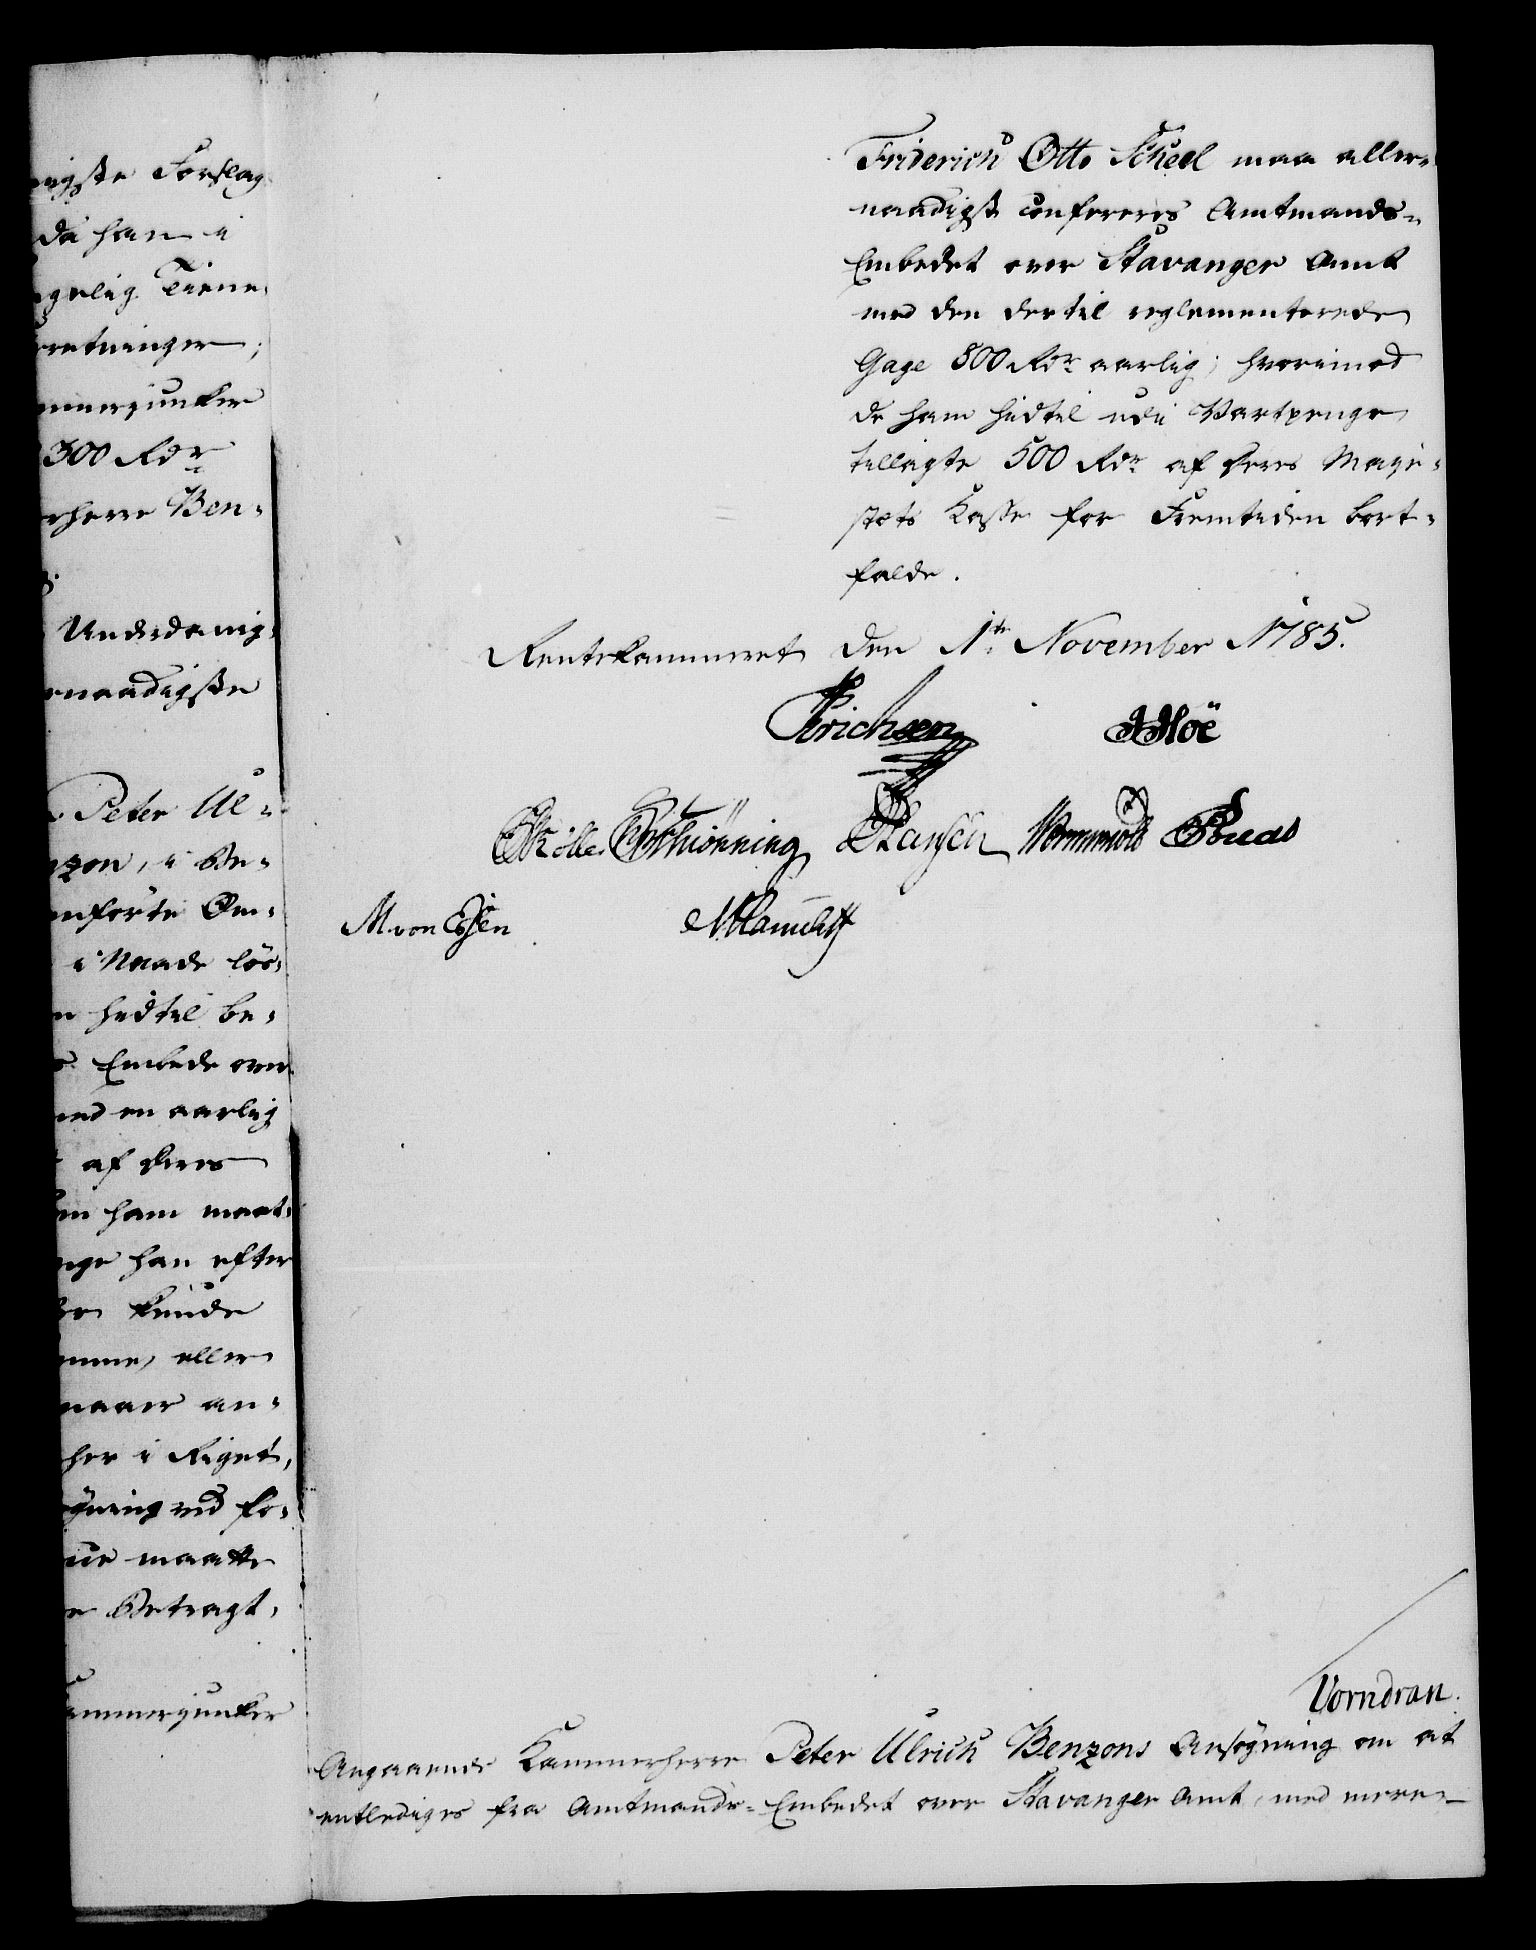 nigste Forslag
da han i
gelig Tiene-
rretninger;
mmerjunker
300 Rdr
rherre Ben-
Underdanig-
rnaadigste
Peter Ul-
nzon, i Be-
anförte Om-
i Naade lös-
n hidtil be-
s Embede over
med en aarlig
af Deres
ham maat-
nge han efter
kunde
mme, eller
naaer an-
her i Riget,
ögning ved fo-
maatte
Betragt-
ammerjunker
Friderich Otto Scheel maa aller-
naadigst confereres Amtmands-
Embedet over Stavanger Amt
med den dertil reglementerede
Gage 800 Rdr aarlig; hvorimod
de ham hidtil udi Vartpenge
tillagte 500 Rdr af Deres Maje-
stæts Kasse for Fremtiden bort-
falde.
Rentekammeret den 1te November 1785.
Erichsen JHoë
Müller Schiönning Hansen Wormskiold
M. von Essen
Vorndran.
Angaaende Kammerherre Peter Ulrich Benzons Ansögning om at
entlediges fra Amtmands-Embedet over Stavanger Amt, med mere